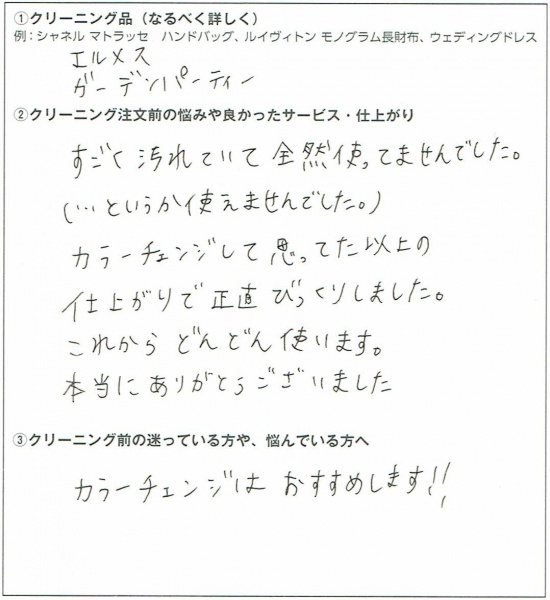 ①クリーニング品（なるべく詳しく）
例：シャネル マトラッセ　ハンドバッグ、ルイヴィトン モノグラム長財布、ウェディングドレス
エルメス
ガーデンパーティー
②クリーニング注文前の悩みや良かったサービス・仕上がり
すごく汚れていて全然使ってませんでした。
（…というか使えませんでした。）
カラーチェンジして思ってた以上の
仕上がりで正直びっくりしました。
これからどんどん使います。
本当にありがとうございました
③クリーニング前の迷っている方や、悩んでいる方へ
カラーチェンジはおすすめします!!